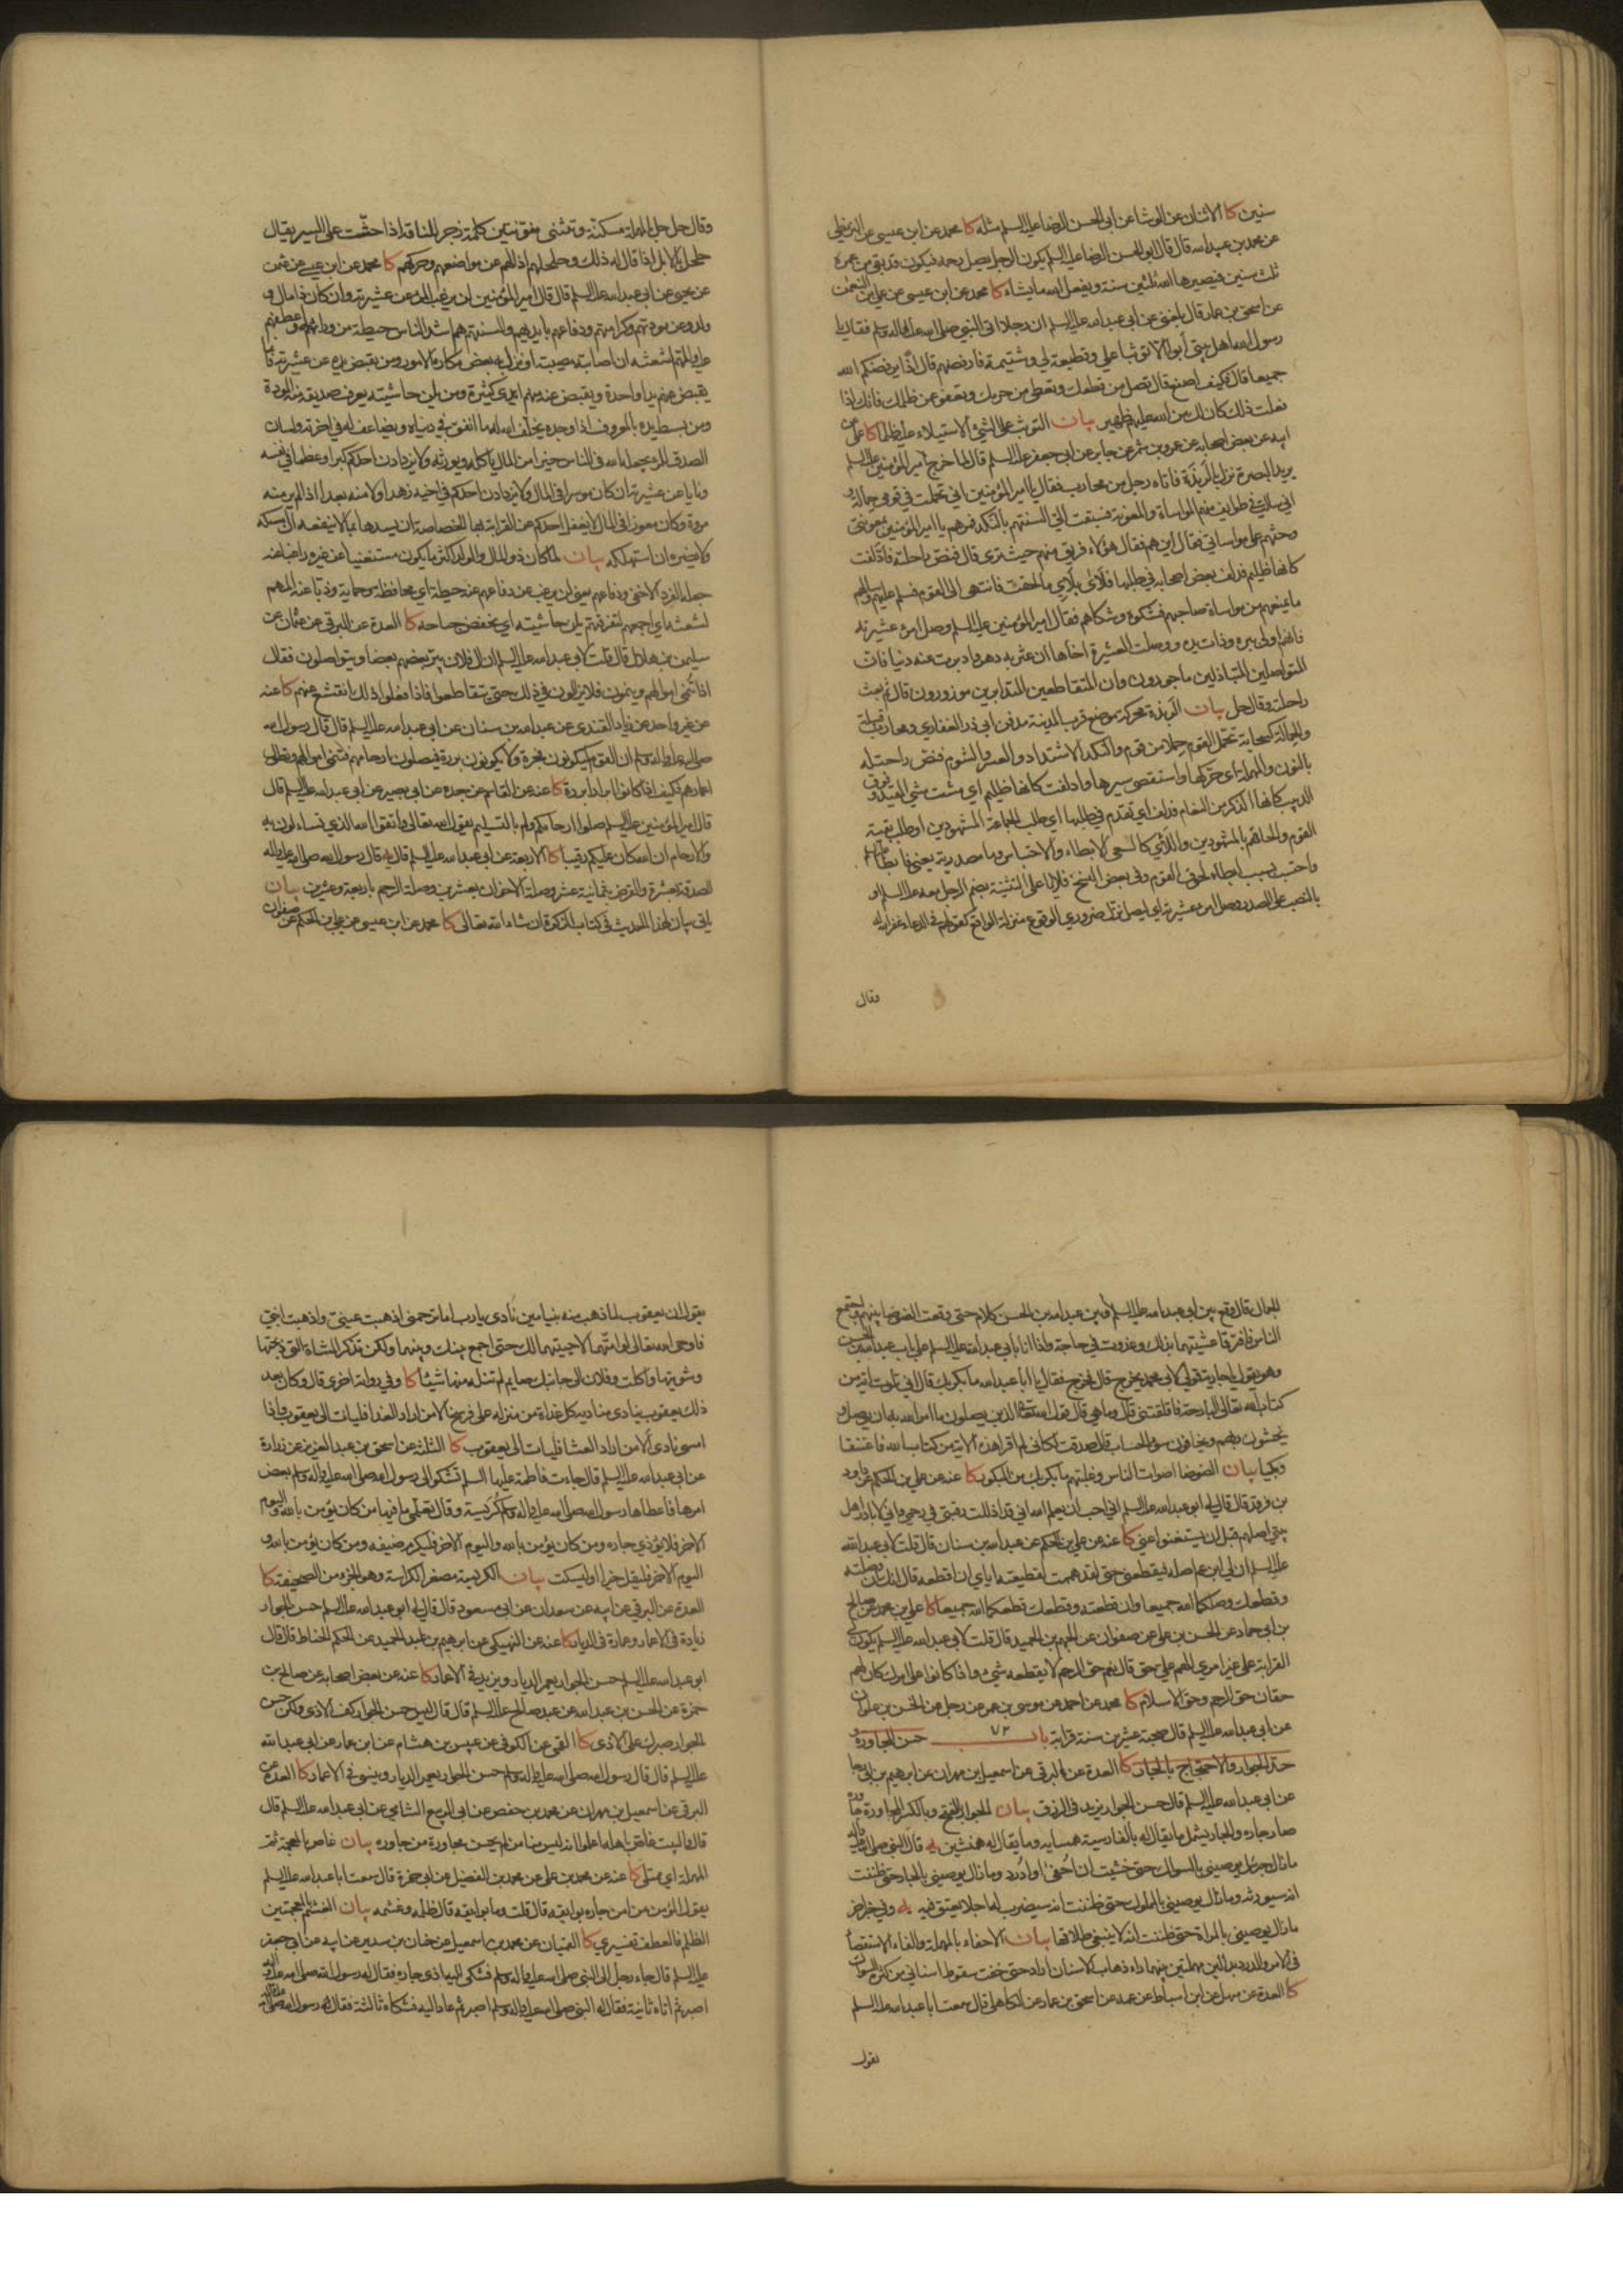 سنين كا الاثنان عن الوشا عن ابي الحسن الرضا عليه السلم مثله كا محمد عن ابن عيسى عن البزنطي
عن محمد بن عبيد الله قال قال ابو الحسن الرضا عليه السلم يكون الرجل يصل رحمه فيكون قد بقي من عمره
ثلث سنين فيصيرها الله ثلثين سنة ويفعل الله ما يشاء كا محمد عن ابن عيسى عن علي بن النعمن
عن اسحق بن عمار قال بلغني عن ابي عبد الله عليه السلم ان رجلا اتى النبي صلى الله عليه واله وسلم فقال يا
رسول الله اهل بيتي أبوا الا توثبا علي وقطيعة لي وشتيمة فارفضهم قال اذا يرفضكم الله
جميعا قال فكيف اصنع قال تصل من قطعك وتعطي من حرمك وتعفو عن ظلمك فانك اذا
فعلت ذلك كان لك من الله عليهم ظهير بيان التوثب على الشئ الاستيلاء عليه ظلما كا علي عن
ابيه عن بعض اصحابه عن عمرو بن شمر عن جابر عن ابي جعفر عليه السلم قال لما خرج امير المؤمنين عليه السلم
يريد البصرة نزل بالربذة فاتاه رجل من محارب فقال يا امير المؤمنين اني تحملت في قومي حمالة و
اني سالت في طوايف منهم المواساة والمعونة فسبقت الي السنتهم بالنكد فمرهم يا امير المؤمنين بمعونتي
وحثهم على مواساتي فقال اين هم فقال هؤلاء فريق منهم حيث ترى قال فنص راحلته فادلفت
كانها ظليم فدلف بعض اصحابه في طلبها فلأيا بلأي ما لحقت فانتهى الى القوم فسلم عليهم وسالهم
ما يمنعهم من مواساة صاحبهم فشكوه وشكاهم فقال امير المؤمنين عليه السلم وصل امرؤ عشيرته
فانهم اولى ببره وذات يده ووصلت العشيرة اخاها ان عثر به دهر وادبرت عنه دنيا فان
المتواصلين المتباذلين ماجورون وان المتقاطعين المتدابرين موزورون قال ثم بعث
راحلته وقال حل بيان الربذة محركة موضع قرب المدينة مدفن ابي ذر الغفاري ومحارب قبيلة
والحمالة كسحابة تحمل القوم حملا من قوم والنكد الاشتداد والعسر والشوم فنص راحلته
بالنون والمهملة اي حركها واستقصى سيرها وادلفت كانها ظليم اي مشت مشي المقيد و فوق
الدبيب كانها الذكر من النعام فدلف اي تقدم في طلبها اي طلب الجماعة المشهودين او طلب بقية
القوم والحاقهم بالمشهودين واللأي كالسعي الابطاء والاحتباس وما مصدرية يعني فابطأ
واحتبس بسبب ابطاء لحوق القوم وفي بعض النسخ فلايا على التثنية بضم الرجل معه عليه السلم او
بالنصب على المصدر وصل امرؤ عشيرته اي ليصل نزل ضروري الوقوع منزلة الواقع كقولهم في الدعاء غفر الله له
وقال
وقال حل حل المهملة مسكنة وتثنى منونتين كلمة زجر للناقة اذا حثت على السير يقال
حلحل بالابل اذا قال له ذلك وحلحلهم اذالهم عن مواضعهم وحركهم كا محمد عن ابن عيسى عن عثمن
عن يحيى عن ابي عبد الله عليه السلم قال قال امير المؤمنين لن يرغب المرء عن عشيرته وان كان ذا مال و
ولد وعن مودتهم وكرامتهم ودفاعهم بايديهم والسنتهم هم اشد الناس حيطة من ورائه واعطفهم
عليه والمهم لشعثه ان اصابته مصيبة او نزل به بعض مكاره الامور ومن يقبض يده عن عشيرته فانما
يقبض عنهم يدا واحدة ويقبض عنه منهم ايدي كثيرة ومن يلن حاشيته يعرف صديقه منه المودة
ومن بسط يده بالمعروف اذا وجده يخلف الله له ما انفق في دنياه ويضاعف له في اخرته ولسان
الصدق للمرء يجعله الله في الناس خيرا من المال ياكله ويورثه ولا يزدادن احدكم كبرا وعظما في نفسه
ونايا عن عشيرته ان كان موسرا في المال ولا يزدادن احدكم في اخيه زهدا ولا منه بعدا اذا لم ير منه
مروة وكان معوزا في المال لا يغفل احدكم عن القرابة بها الخصاصة ان يسدها بما لا ينفعه ان امسكه
ولا يضره ان استهلكه بيان لما كان ذو المال والولد اكثر ما يكون مستغنيا عن غيره راغبا عنه
جعله الفرد الاخفى ودفاعهم يعني لن يرغب عن دفاعهم عنه حيطة اي محافظة وحماية وذبا عنه المهم
لشعثه اي اجمعهم لتفرقهم يلن حاشيته اي يخفض جناحه كا العدة عن البرقي عن عثمان عن
سليمن بن هلال قال قلت لابي عبد الله عليه السلم ان ال فلان يبر بعضهم بعضا ويتواصلون فقال
اذا تنمي اموالهم وينمون فلا يزالون في ذلك حتى يتقاطعوا فاذا فعلوا ذلك انقشع عنهم كا عنه
عن غير واحد عن زياد القندي عن عبد الله بن سنان عن ابي عبد الله عليه السلم قال قال رسول الله
صلى الله عليه واله وسلم ان القوم ليكونون فجرة ولا يكونون بررة فيصلون ارحامهم فتنمى اموالهم وتطول
اعمارهم فكيف اذا كانوا ابرارا بررة كا عنه عن القاسم عن جده عن ابي بصير عن ابي عبد الله عليه السلم قال
قال امير المؤمنين عليه السلم صلوا ارحامكم ولو بالتسليم يقول الله تعالى واتقوا الله الذي تساءلون به
والارحام ان الله كان عليكم رقيبا كا الاربعة عن ابي عبد الله عليه السلم قال قال رسول الله صلى الله عليه واله
الصدقة بعشرة والقرض بثمانية عشر وصلة الاخوان بعشرين وصلة الرحم باربعة وعشرين بيان
ياتي بيان لهذا الحديث في كتاب الزكوة ان شاء الله تعالى كا محمد عن ابن عيسى عن علي بن الحكم عن صفوان
الجمال قال وقع بين ابي عبد الله عليه السلم وبين عبد الله بن الحسن كلام حتى وقعت الضوضا بينهم واجتمع
الناس فافترقا عشيتهما بذلك وغدوت في حاجة فاذا انا بابي عبد الله عليه السلم على باب عبد الله بن الحسن
وهو يقول يا جارية قولي لابي محمد يخرج قال فخرج فقال يا أبا عبد الله ما بكر بك قال اني تلوت اية من
كتاب الله تعالى البارحة فاقلقتني قال وما هي قال قول الله تعالى الذين يصلون ما امر الله به ان يوصل و
يخشون ربهم ويخافون سوء الحساب قال صدقت لكاني لم اقرا هذه الاية من كتاب الله فاعتنقا
وبكيا بيان الضوضا اصوات الناس وغلبتهم ما بكر بك من البكور كا عنه عن علي بن الحكم عن داود
بن فرقد قال قال لي ابو عبد الله عليه السلم اني احب ان يعلم الله اني قد اذللت رقبتي في رحمي واني لابادر اهل
بيتي اصلهم قبل ان يستغنوا عني كا عنه عن علي بن الحكم عن عبد الله بن سنان قال قلت لابي عبد الله
عليه السلم ان لي ابن عم اصله فيقطعني حتى لقد هممت لقطيعته اياي ان اقطعه قال انك ان وصلته
وقطعك وصلكما الله جميعا وان قطعته وقطعك قطعكما الله جميعا كا علي بن محمد عن صالح
بن ابي حماد عن الحسن بن علي عن صفوان عن الجهم بن الحميد قال قلت لابي عبد الله عليه السلم يكون لي
القرابة على غير امري الهم علي حق قال نعم حق الرحم لا يقطعه شيء واذا كانوا على امرك كان لهم
حقان حق الرحم وحق الاسلام كا محمد عن احمد عن موسى بن عمر عن رجل عن الحسن بن علوان
عن ابي عبد الله عليه السلم قال صحبة عشرين سنة قرابة باب ٧٢ حسن المجاورة و
حد الجوار والاحتجاج بالجار كا العدة عن البرقي عن اسمعيل بن مهران عن ابرهيم بن ابي رجا
عن ابي عبد الله عليه السلم قال حسن الجوار يزيد في الرزق بيان الجوار بالفتح وبالكسر المجاورة جاوره
صار جاره والجار يشمل ما يقال له بالفارسية همسايه وما يقال له همنشين يه قال النبي صلى الله عليه واله
ما زال جبرئيل يوصيني بالسواك حتى خشيت ان أحفي او ادرد وما زال يوصيني بالجار حتى ظننت
انه سيورثه وما زال يوصيني بالمملوك حتى ظننت انه سيضرب له اجلا يعتق فيه يه وفي خبر اخر
ما زال يوصيني بالمراة حتى ظننت انه لا ينبغي طلاقها بيان الاحفاء بالمهملة والفاء الاستقصأ
في الامر والدرد بدالين مهملتين بينهما راء ذهاب الاسنان اراد حتى خفت سقوط اسناني من كثرة السواك
كا العدة عن سهل عن ابن اسباط عن عمه عن اسحق بن عمار عن الكاهلي قال سمعت ابا عبد الله عليه السلم
يقول
يقول ان يعقوب لما ذهب منه بنيامين نادى يا رب اما ترحمني اذهبت عيني واذهبت ابني
فاوحى الله تعالى لو امتهما لاحييتهما لك حتى اجمع بينك وبينهما ولكن تذكر الشاة التي ذبحتها
وشويتها واكلت وفلان الى جانبك صايم لم تنله منها شيئا كا وفي رواية اخرى قال وكان بعد
ذلك يعقوب ينادي مناديه كل غداة من منزله على فرسخ الا من اراد الغدا فليات الى يعقوب واذا
امسى نادى ألا من اراد العشا فليات الى يعقوب كا الثلثة عن اسحق بن عبد العزيز عن زرارة
عن ابي عبد الله عليه السلم قال جاءت فاطمة عليها السلم تشكو الى رسول الله صلى الله عليه واله وسلم بعض
امرها فاعطاها رسول الله صلى الله عليه واله وسلم كريسة وقال تعلمي ما فيها من كان يؤمن بالله واليوم
الاخر فلا يؤذي جاره ومن كان يؤمن بالله واليوم الاخر فليكرم ضيفه ومن كان يؤمن بالله و
اليوم الاخر فليقل خيرا او ليسكت بيان الكريسة مصغر الكراسة وهو الجزو من الصحيفة كا
العدة عن البرقي عن ابيه عن سعدان عن ابي مسعود قال قال لي ابو عبد الله عليه السلم حسن الجوار
زيادة في الاعمار وعمارة في الديار كا عنه عن النهيكي عن ابرهيم بن عبد الحميد عن الحكم الخياط قال قال
ابو عبد الله عليه السلم حسن الجوار يعمر الديار ويزيد في الاعمار كا عنه عن بعض اصحابه عن صالح بن
حمزة عن الحسن بن عبد الله عن عبد صالح عليه السلم قال قال ليس حسن الجوار كف الاذى ولكن حسن
الجوار صبرك على الاذى كا القمي عن الكوفي عن عبيس بن هشام عن ابن عمار عن ابي عبد الله
عليه السلم قال قال رسول الله صلى الله عليه واله وسلم حسن الجوار يعمر الديار وينسئ في الاعمار كا العدة عن
البرقي عن اسمعيل بن مهران عن محمد بن حفص عن ابي الربيع الشامي عن ابي عبد الله عليه السلم قال
قال والبيت غاص باهله اعلموا انه ليس منا من لم يحسن مجاورة من جاوره بيان غاص بالمعجمة ثم
المهملة اي ممتلئ كا عنه عن محمد بن علي عن محمد بن الفضيل عن ابي حمزة قال سمعت ابا عبد الله عليه السلم
يقول المؤمن من امن جاره بوايقه قال قلت وما بوايقه قال ظلمه وغشمه بيان الغشم بالمعجمتين
الظلم فالعطف تفسيري كا القميان عن محمد بن اسمعيل عن حنان بن سدير عن ابيه عن ابي جعفر
عليه السلم قال جاء رجل الى النبي صلى الله عليه واله وسلم فشكى اليه اذى جاره فقال له رسول الله صلى الله عليه واله
اصبر ثم اتاه ثانية فقال له النبي صلى الله عليه واله وسلم اصبر ثم عاد اليه فشكاه ثالثة فقال له رسول الله صلى الله عليه واله